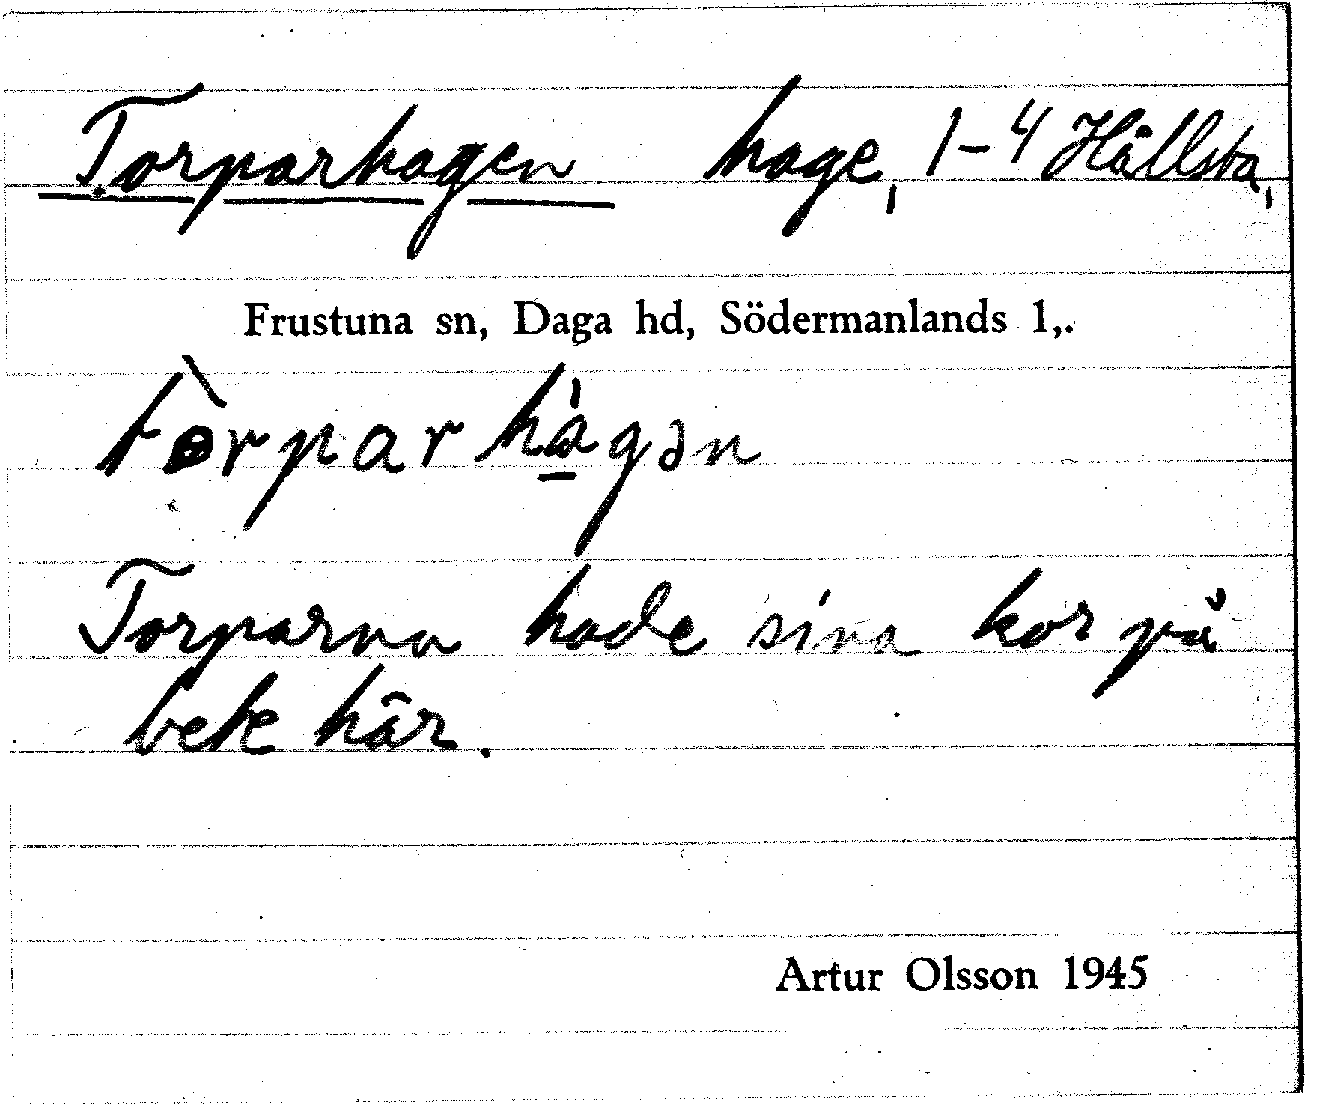 Torparhagen hage, 1-4 Hållsta,
Frustuna sn, Daga hd, Södermanlands l,.
tòrparhá̱gən
Torparna hade sina kor på
bete här.
Artur Olsson 1945